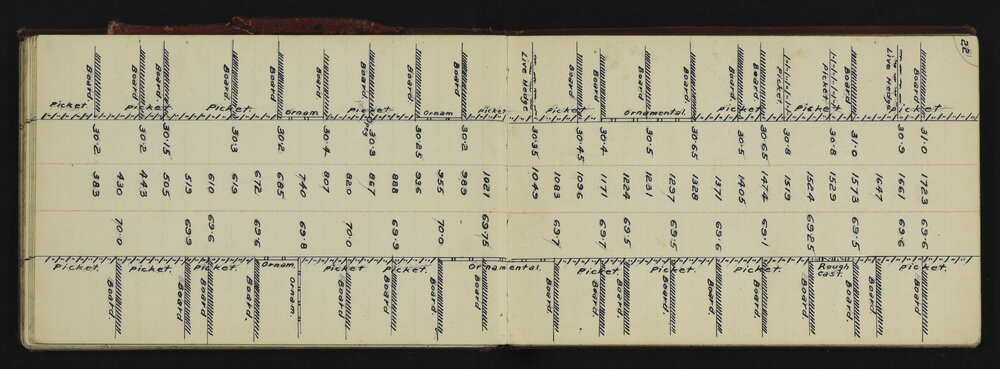 22
Picket. 31.0 1723 69.6 Board.
Live Hedge 30.9 1661 69.6 Picket.
1647 Board
Board 31.0 1573 69.5 Board.
Picket 30.8 1529 Rough Cast.
1524 69.25 Board.
Picket 30.8 1519
Board 30.65 1474 69.1 Board. Picket.
Board 30.5 1405
Picket 1371 69.6 Board. Picket.
Board 30.65 1328
1297 69.5 Board. Picket.
Ornamental.
Board 30.5 1231
1224 69.5 Board.
Board 30.4 1171 69.7 Board. Picket.
Board 30.45 1096
Picket 1083 69.7 Board.
Live Hedge 30.35 1049
Ornamental.
Picket 1021 69.75 Board.
Board 30.2 989
Ornam 955 70.0 Board.
Board 30.25 936
Picket 888 69.9 Board. Picket.
Board 30.3 867
820 70.0 Board Picket
Board. 30.4 807
Ornam 740 69.8 Ornam.
Board 30.2 685 Ornam.
672 69.6 Board.
Board 30.3 619
Picket. 610 69.6 Board Picket
519 69.9 Board
Board 30.15 505 Picket.
Board 30.2 443
Picket. 430 70.0 Board.
Board. 30.2 383
Picket. Picket.